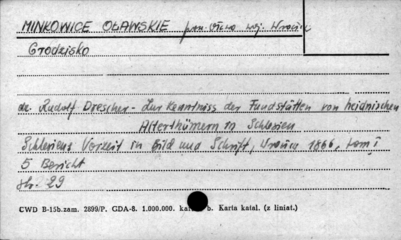 MINKOWICE OŁAWSKIE pow. Oława woj. Wrocław
Grodzisko
dr. Rudolf Drescher - Zur Kenntniss der Fundstätten von heidnischen
Alterthümern in Schlesien
Schlesiens Vorzeit in Bild und Schrift, 1866, tom I
5 Bericht
str. 29
CWD B-15b.zam. 2899/P. GDA-8. 1.000.000. b. Karta katal. (z liniat.)